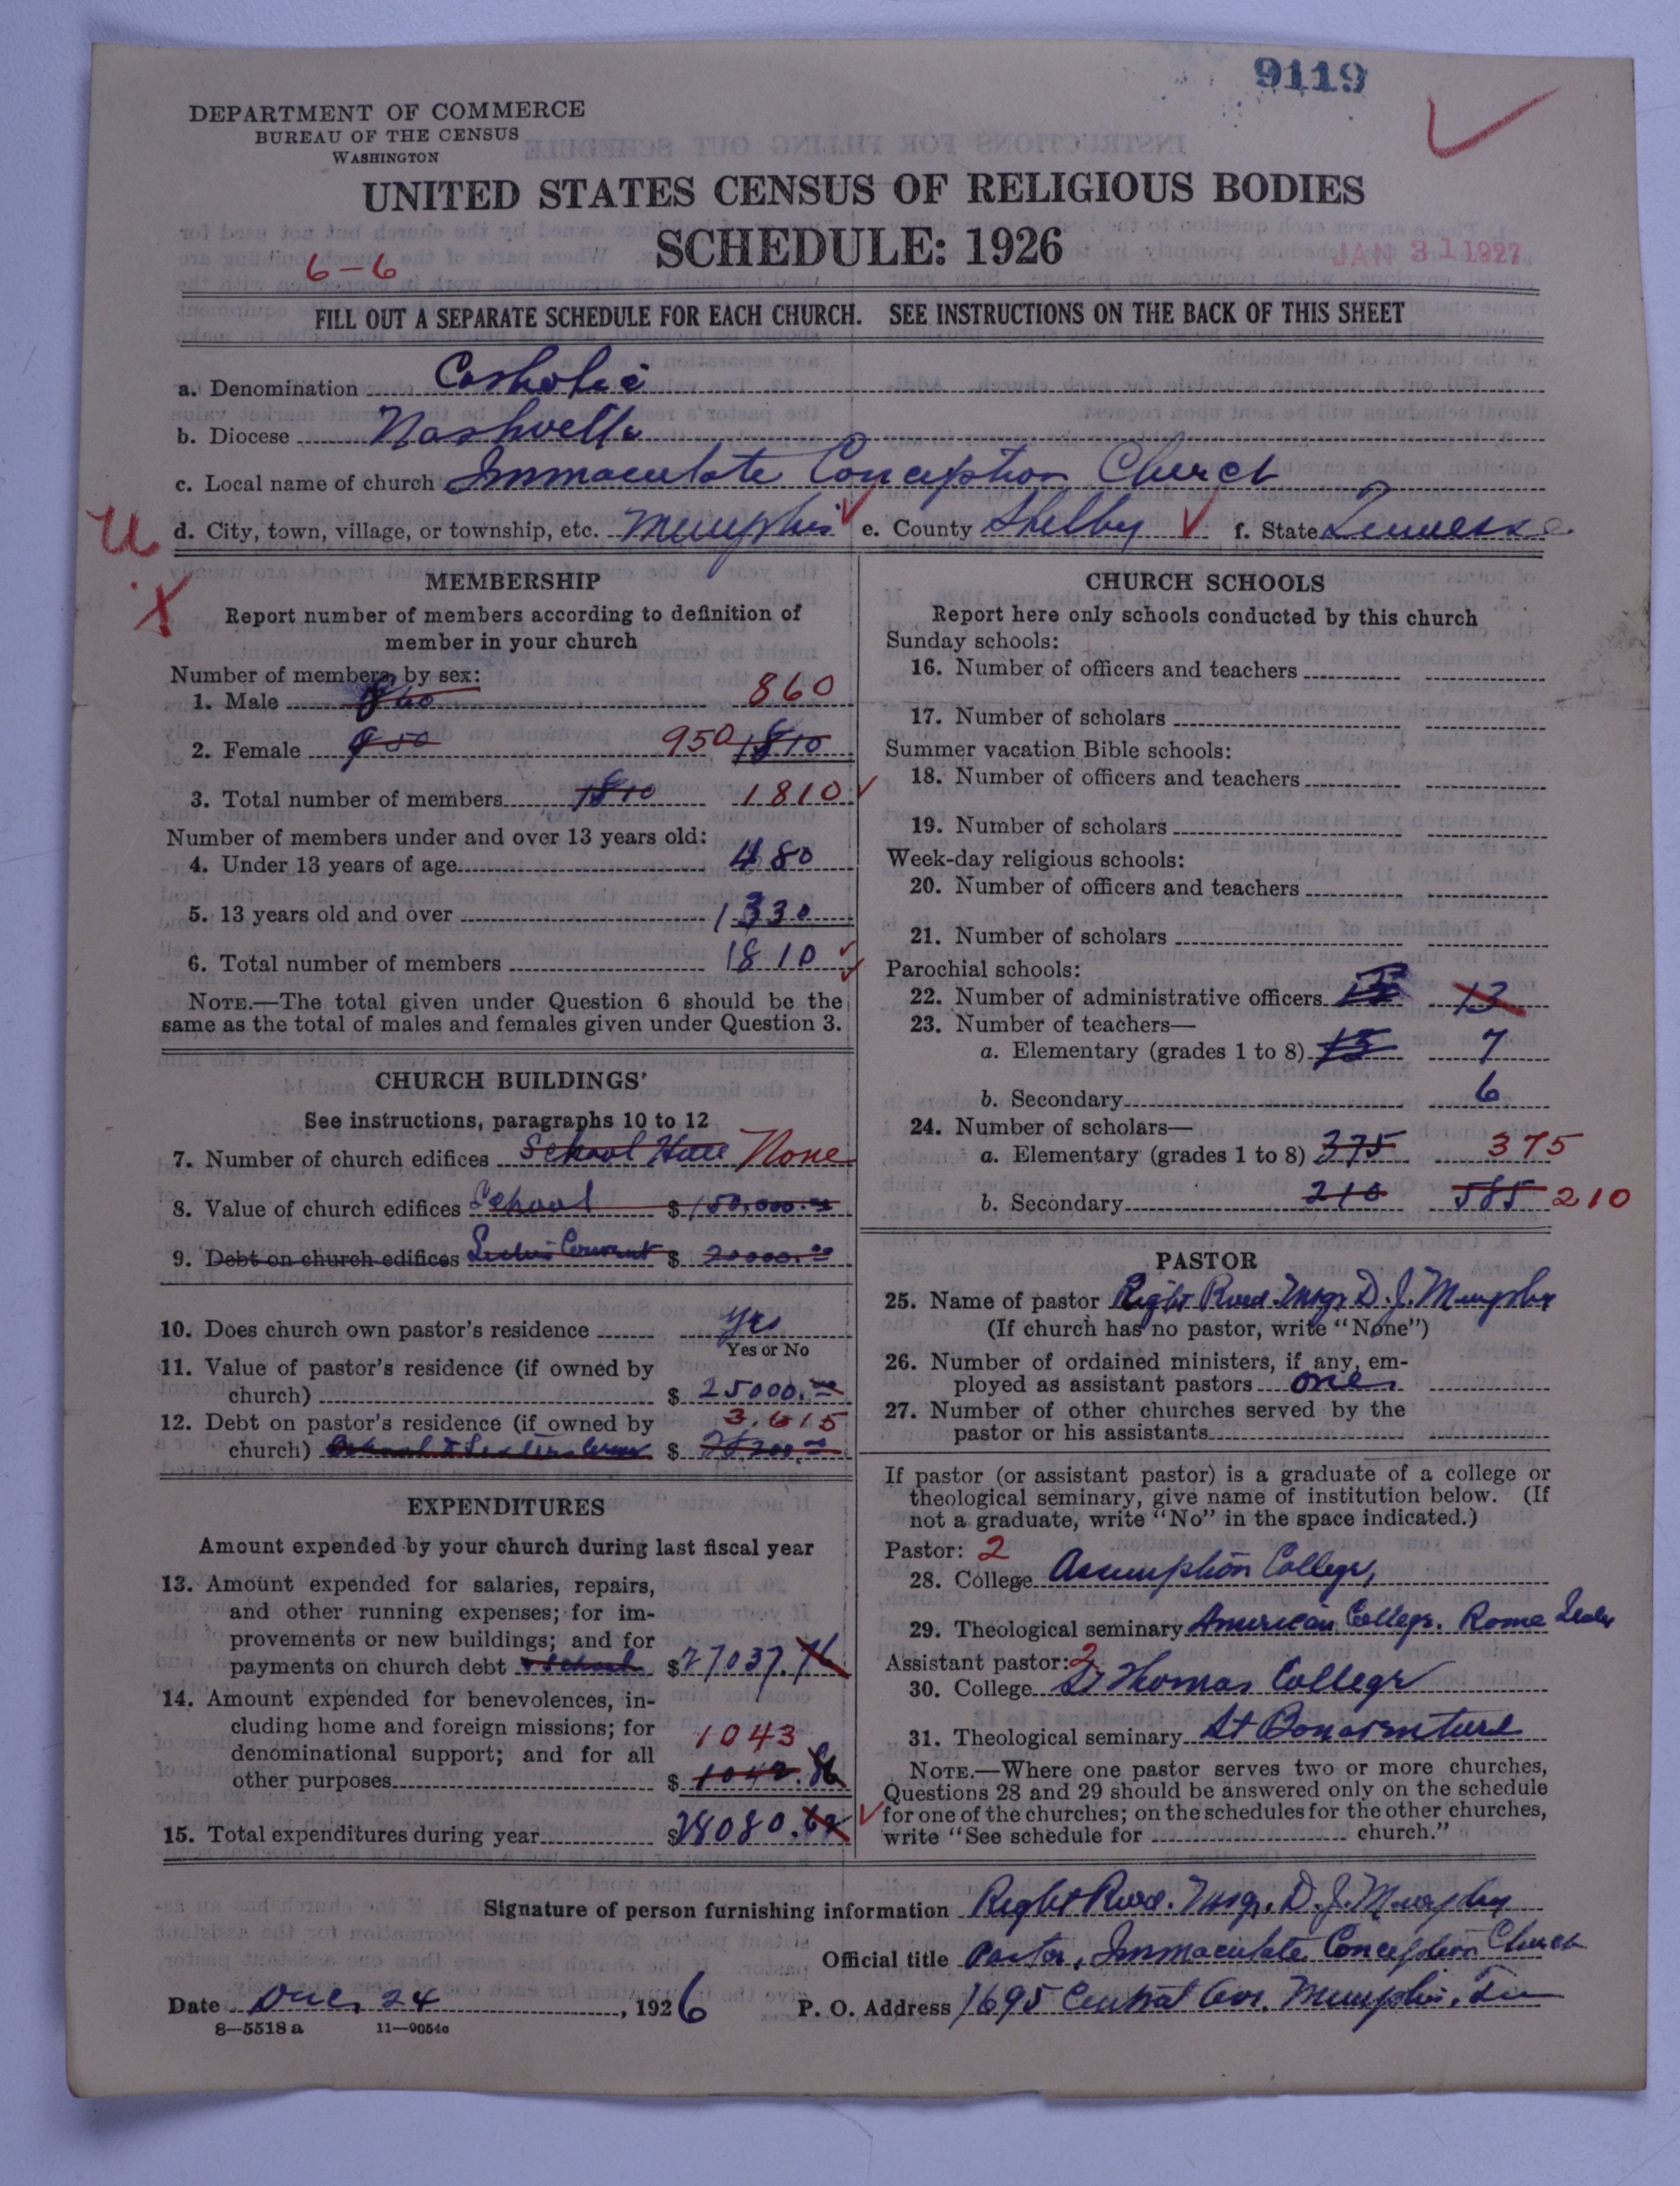 9119
DEPARTMENT OF COMMERCE
BUREAU OF THE CENSUS
WASHINGTON
UNITED STATES CENSUS OF RELIGIOUS BODIES
SCHEDULE: 1926
JAN 31 1927
6-6
FILL OUT A SEPARATE SCHEDULE FOR EACH CHURCH. SEE INSTRUCTIONS ON THE BACK OF THIS SHEET
a. Denomination Catholic
b. Diocese Nashville
c. Local name of church Immaculate Conception Church
U
d. City, town, village, or township, etc. Memphis e. County Shelby f. State Tennessee
X
MEMBERSHIP
Report number of members according to definition of
member in your church
Number of members by sex:
1. Male 860 860
2. Female 950 950 1810
3. Total number of members 1810 1810
Number of members under and over 13 years old:
4. Under 13 years of age 480
5. 13 years old and over 1330
6. Total number of members 1810
NOTE.—The total given under Question 6 should be the
same as the total of males and females given under Question 3.
CHURCH BUILDINGS
See instructions, paragraphs 10 to 12
7. Number of church edifices School Hall None
8. Value of church edifices School $ 150,000.00
9. Debt on church edifices Sisters Convent $ 20000.00
10. Does church own pastor's residence Yes
Yes or No
11. Value of pastor's residence (if owned by
church) $ 25000.00
12. Debt on pastor's residence (if owned by 3,615
church) School & Sisters $
EXPENDITURES
Amount expended by your church during last fiscal year
13. Amount expended for salaries, repairs,
and other running expenses; for im-
provements or new buildings; and for
payments on church debt & School $27037.76
14. Amount expended for benevolences, in-
cluding home and foreign missions; for 1043
denominational support; and for all
other purposes $ 1042.86
15. Total expenditures during year $28080.62
CHURCH SCHOOLS
Report here only schools conducted by this church
Sunday schools:
16. Number of officers and teachers
17. Number of scholars
Summer vacation Bible schools:
18. Number of officers and teachers
19. Number of scholars
Week-day religious schools:
20. Number of officers and teachers
21. Number of scholars
Parochial schools:
22. Number of administrative officers 13
23. Number of teachers—
a. Elementary (grades 1 to 8) 7
b. Secondary 6
24. Number of scholars—
a. Elementary (grades 1 to 8) 375 375
b. Secondary 210 585 210
PASTOR
25. Name of pastor Right Revd. Msgr D. J. Murphy
(If church has no pastor, write "None")
26. Number of ordained ministers, if any, em-
ployed as assistant pastors one
27. Number of other churches served by the
pastor or his assistants
If pastor (or assistant pastor) is a graduate of a college or
theological seminary, give name of institution below. (If
not a graduate, write "No" in the space indicated.)
Pastor: 2
28. College Assumption College,
29. Theological seminary American College, Rome Italy
Assistant pastor: 2
30. College St Thomas College
31. Theological seminary St Bonaventure
NOTE.—Where one pastor serves two or more churches,
Questions 28 and 29 should be answered only on the schedule
for one of the churches; on the schedules for the other churches,
write "See schedule for church."
Signature of person furnishing information Right Revd. Msgr. D. J. Murphy
Official title Pastor, Immaculate Conception Church
Date Dec. 24, 1926 P. O. Address 1695 Central Ave. Memphis, Tenn
8—5518 a 11—9054c